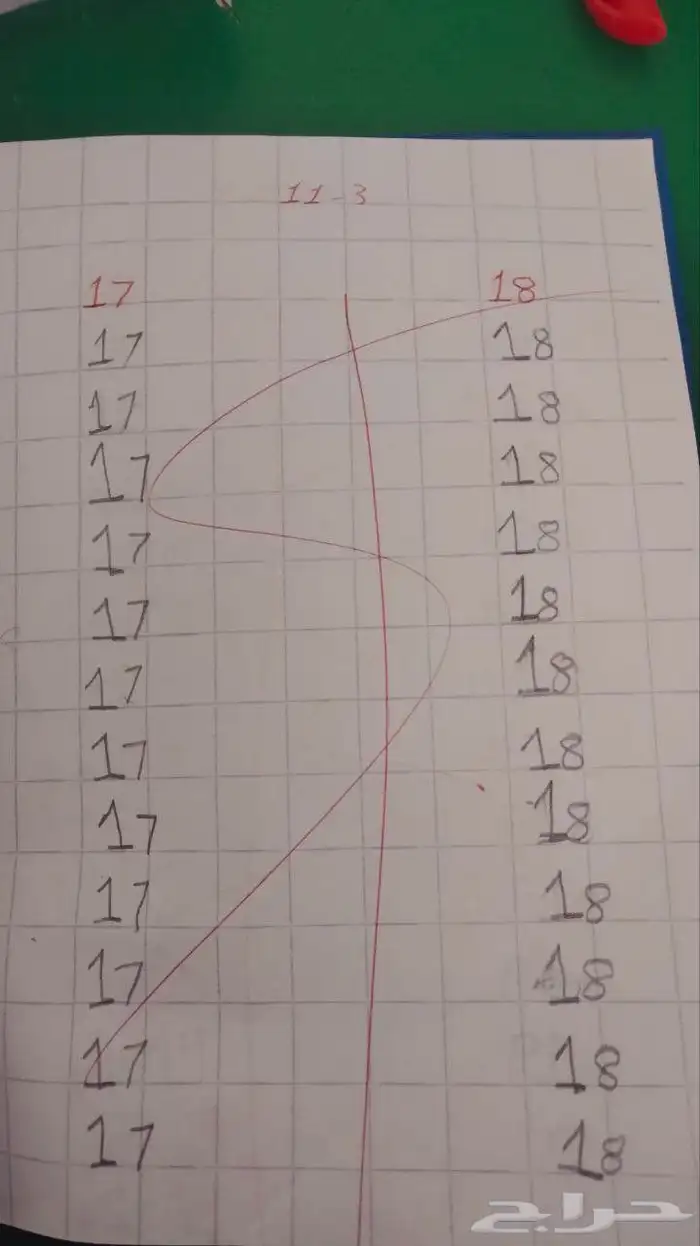 11-3
17 18
17 18
17 18
17 18
17 18
17 18
17 18
17 18
17 18
17 18
17 18
17 18
17 18
حراج